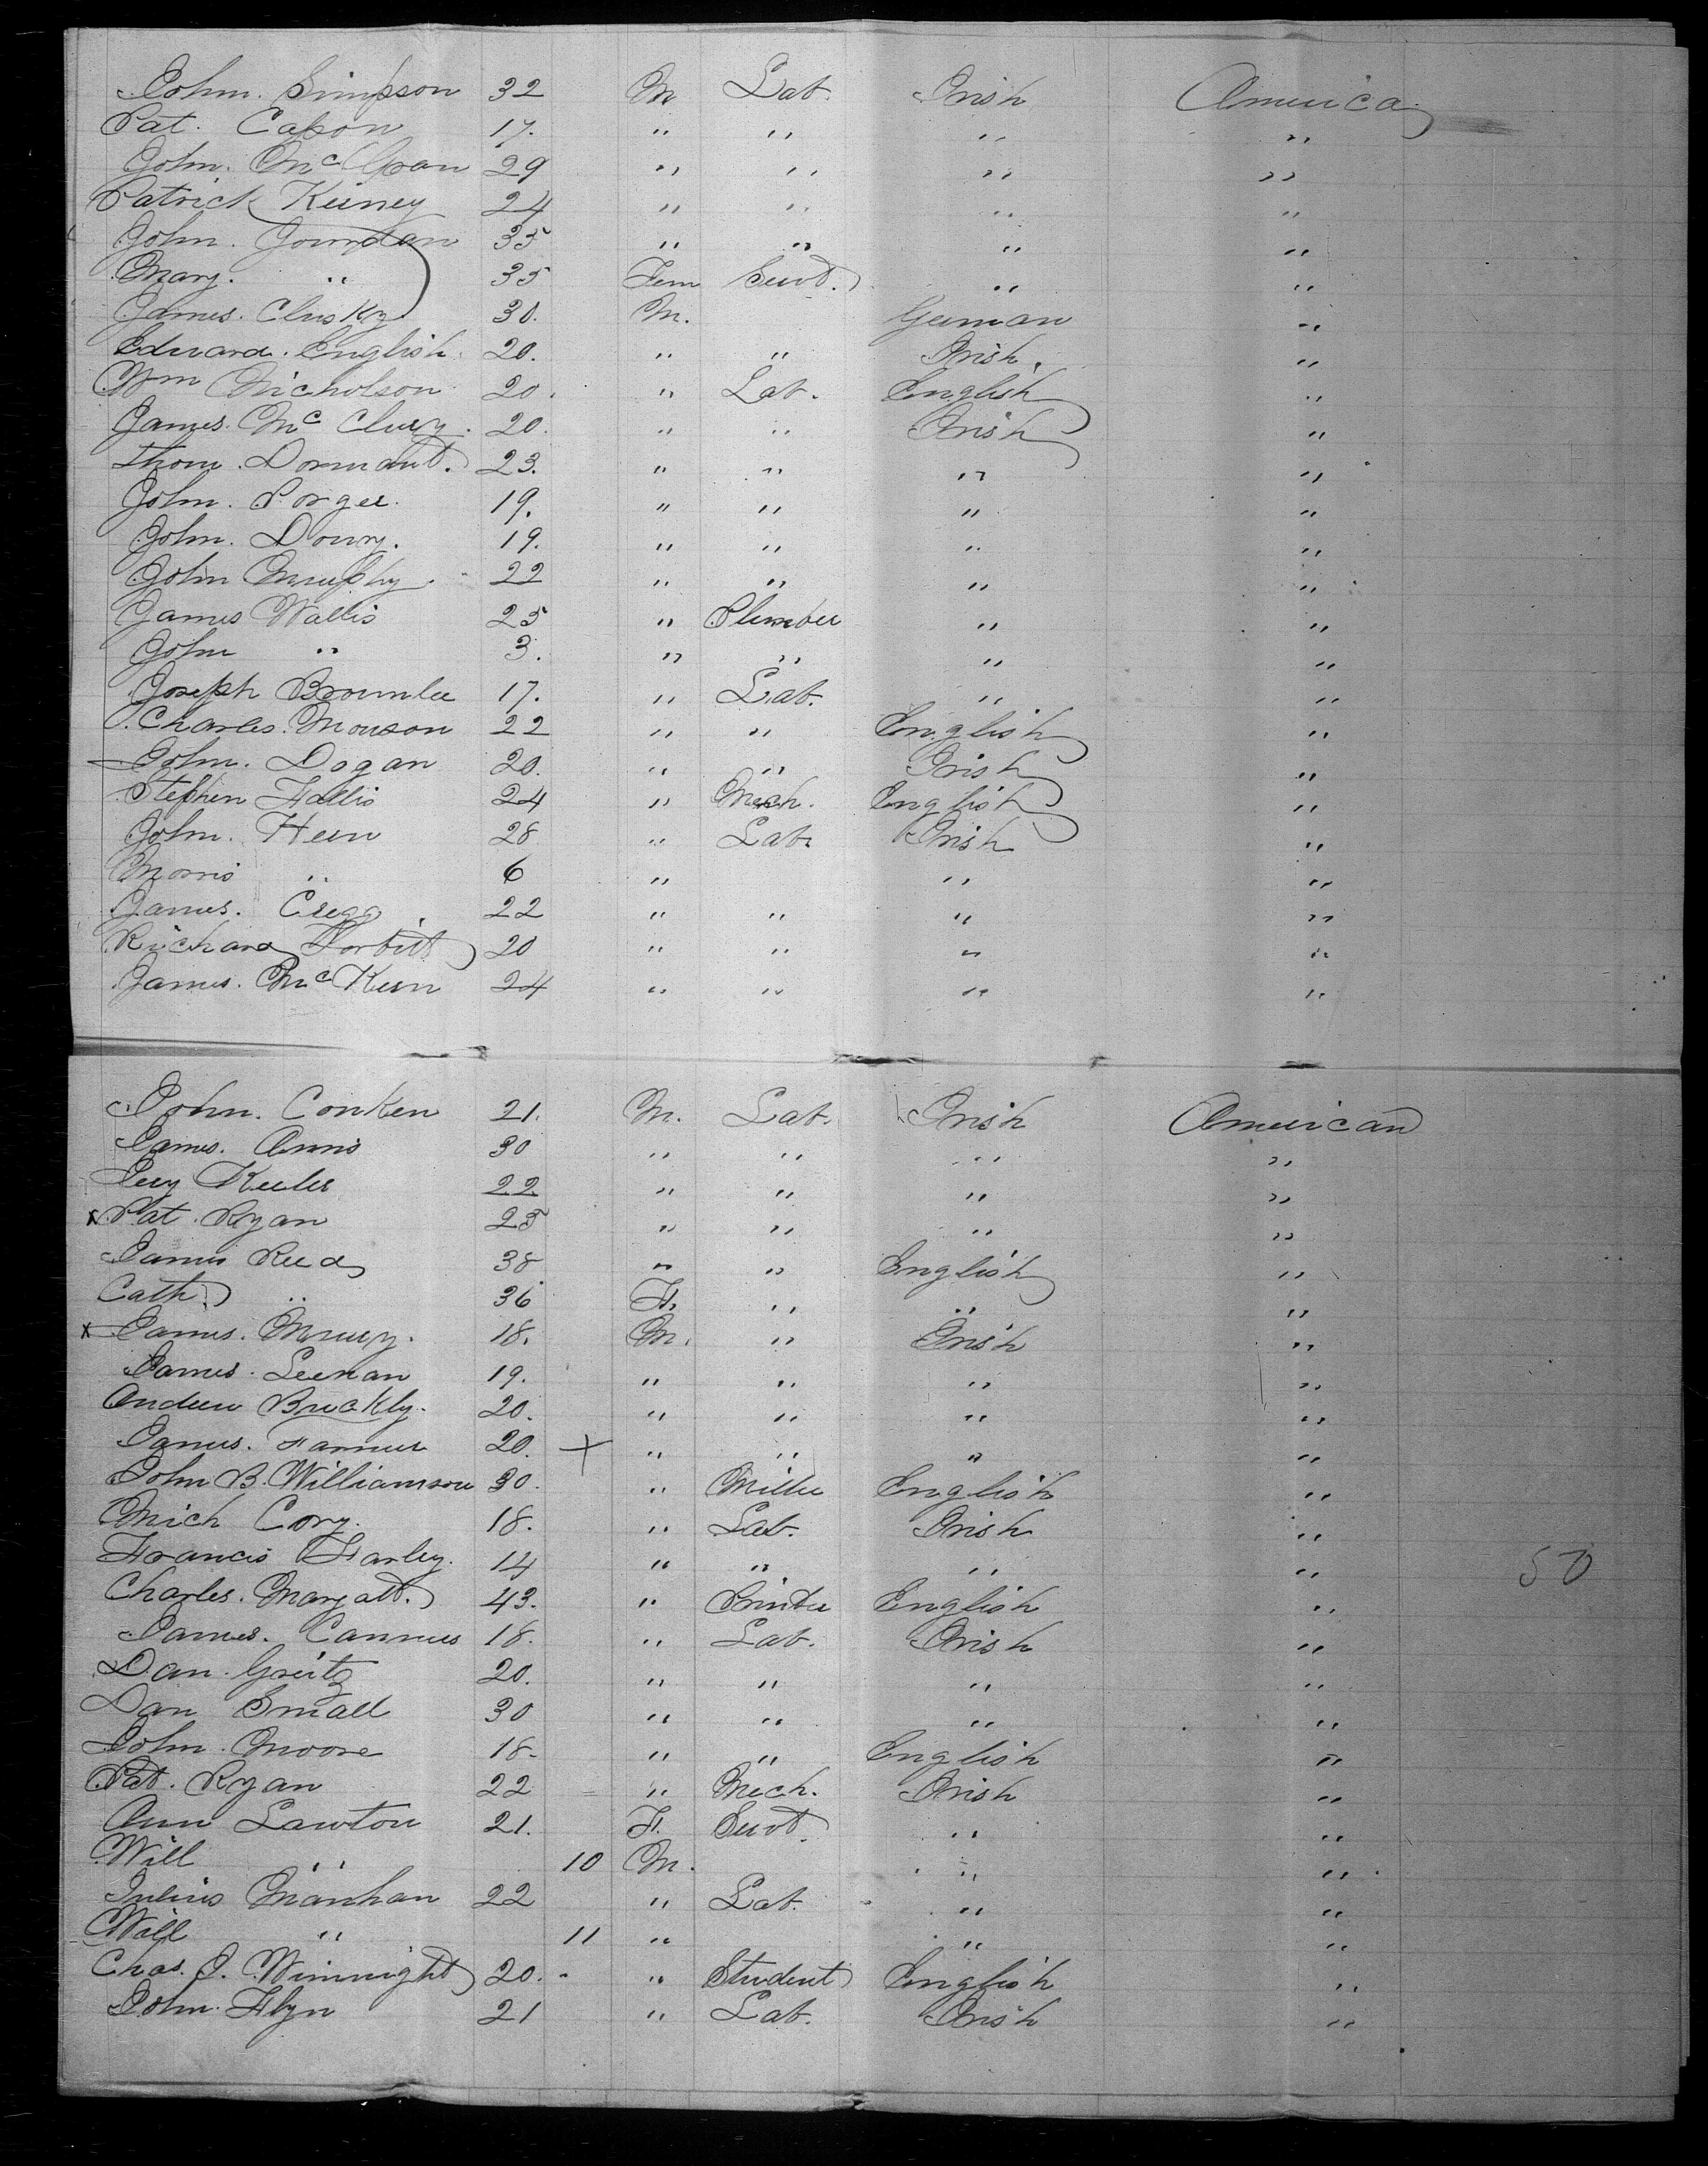 John. Simpson 32 M Lab. Irish America
Pat. Capon 17. " " " "
John. McGran 29 " " " "
Patrick Keiney 24 " " " "
John. Jourdan 35 " " " "
Mary. " 35 Fem Servt. " "
James. Clusky 30. M. German "
Edward. English. 20. " " Irish. "
Wm Nicholson 20. " Lab. English "
James. Mc Clury. 20. " " Irish "
Thom. Dormant. 23. " " " "
John. Porger. 19. " " " "
John. Dowry. 19. " " " "
John Murphy. 22 " " " "
James Wallis 25 " Plumber " "
John " 3. " " " "
Joseph Brownlee 17. " Lab. " "
Charles. Monson 22 " " English "
John. Dogan 20. " " Irish "
Stephen Fallis 24 " Mech. English "
John. Hern 28 " Lab. Irish "
Morris " 6 " " "
James. Cregg 22 " " " "
Richard Forbitt 20 " " " "
James. McKern 24 " " " "
John. Conken 21. M. Lab. Irish American
James. Annis 30 " " " "
Keeler 22 " " " "
x Pat. Ryan 25 " " " "
James Reed 38 " " English "
Cath. " 36 F. " " "
x James. Mrury. 18. M. " Irish "
James. Leenan 19. " " " "
Andrew Bruckly. 20. " " " "
James. Farmer 20. + " " " "
John B. Williamson 30. " Miller English "
Mich Cory. 18. " Lab. Irish "
Francis Farley. 14 " " " " 50
Charles. Maryatt. 43. " Printer English "
James. Cannus 18. " Lab. Irish "
Dan. Greitz 20. " " " "
Dan Small 30 " " " "
John. Moore 18. " " English "
Pat. Ryan 22 " Mech. Irish "
Ann Lawton 21. F. Servt. " "
Will " 10 M. " "
Julius Manhan 22 " Lab. " "
Will " 11 " " "
Chas. J. Winnight 20. " Student English "
John. Flyn 21 " Lab. Irish "